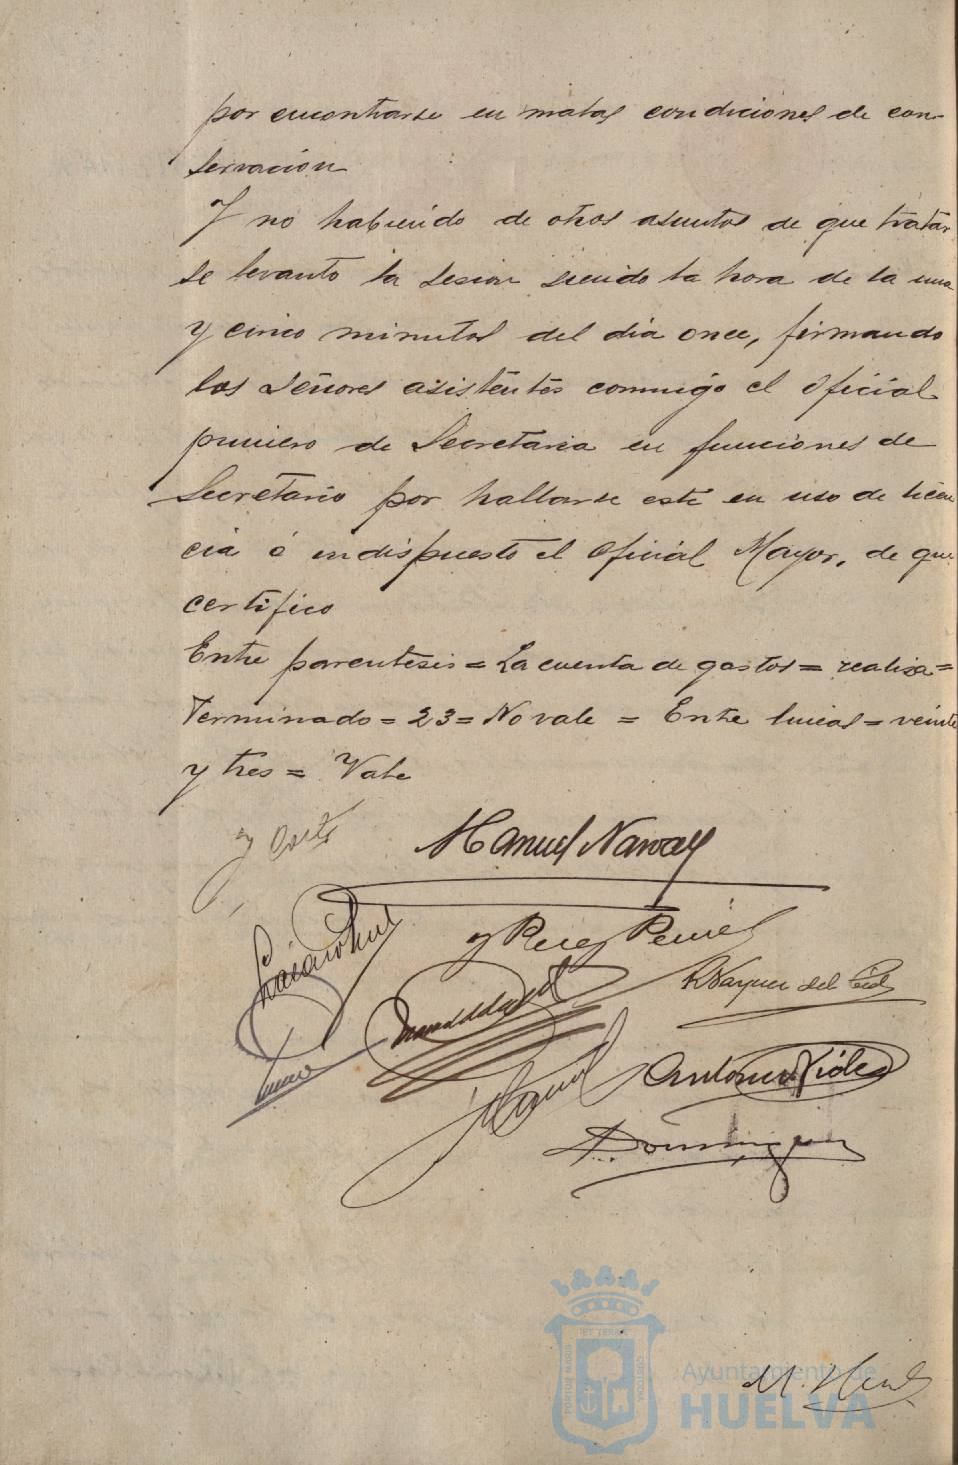 por encontrarse en malas condiciones de con-
servacion
Y no habiendo de otros asuntos de que tratar
se levanto la sesion siendo la hora de la una
y cinco minutos del dia once, firmando
los Señores asistentes conmigo el Oficial
primero de Secretaria en funciones de
Secretario por hallarse este en uso de licen
cia é indispuesto el Oficial Mayor, de que
certifico
Entre parentesis = La cuenta de gastos = realiza =
Terminado = 23 = No vale = Entre lineas = veinte
y tres = Vale
Manuel Navarro
y Perez
R Vazquez del Cid
Antonio Vides
Dominguez
PORTUS MARIS
ET TERRAE
CUSTODIA
Ayuntamiento de
HUELVA
M.